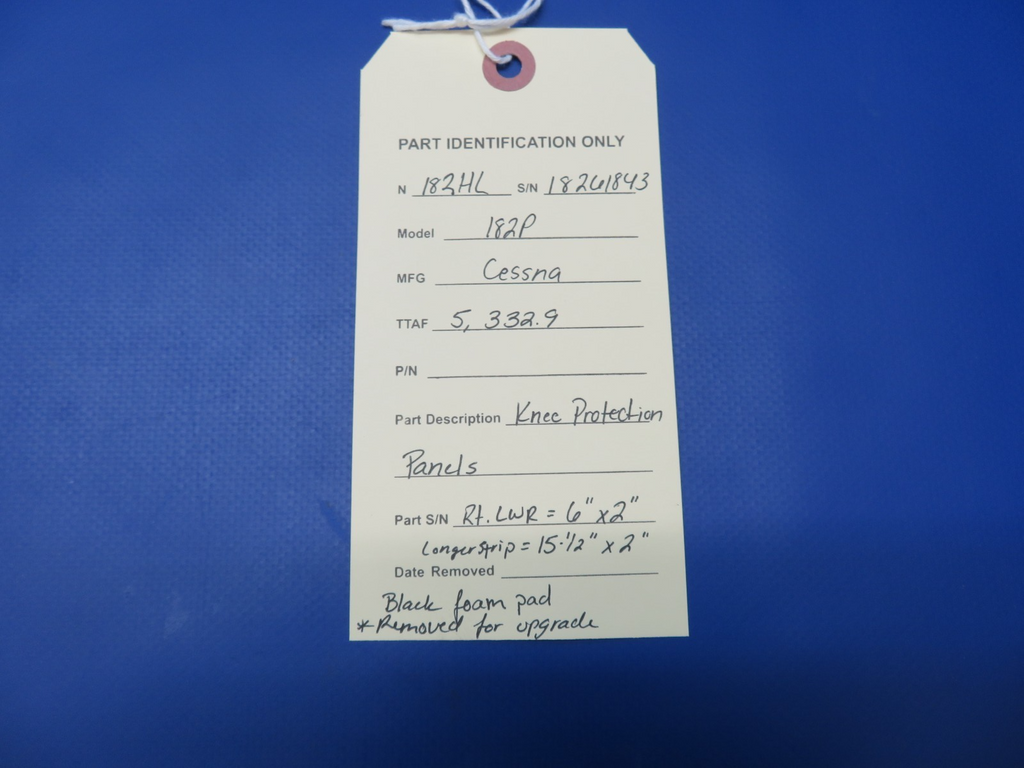 PART IDENTIFICATION ONLY
N 182HL S/N 18261843
Model 182P
MFG Cessna
TTAF 5, 332.9
P/N
Part Description Knee Protection
Panels
Part S/N Rt. LWR = 6" x 2"
Longer strip = 15-1/2" x 2"
Date Removed
Black foam pad
*Removed for upgrade